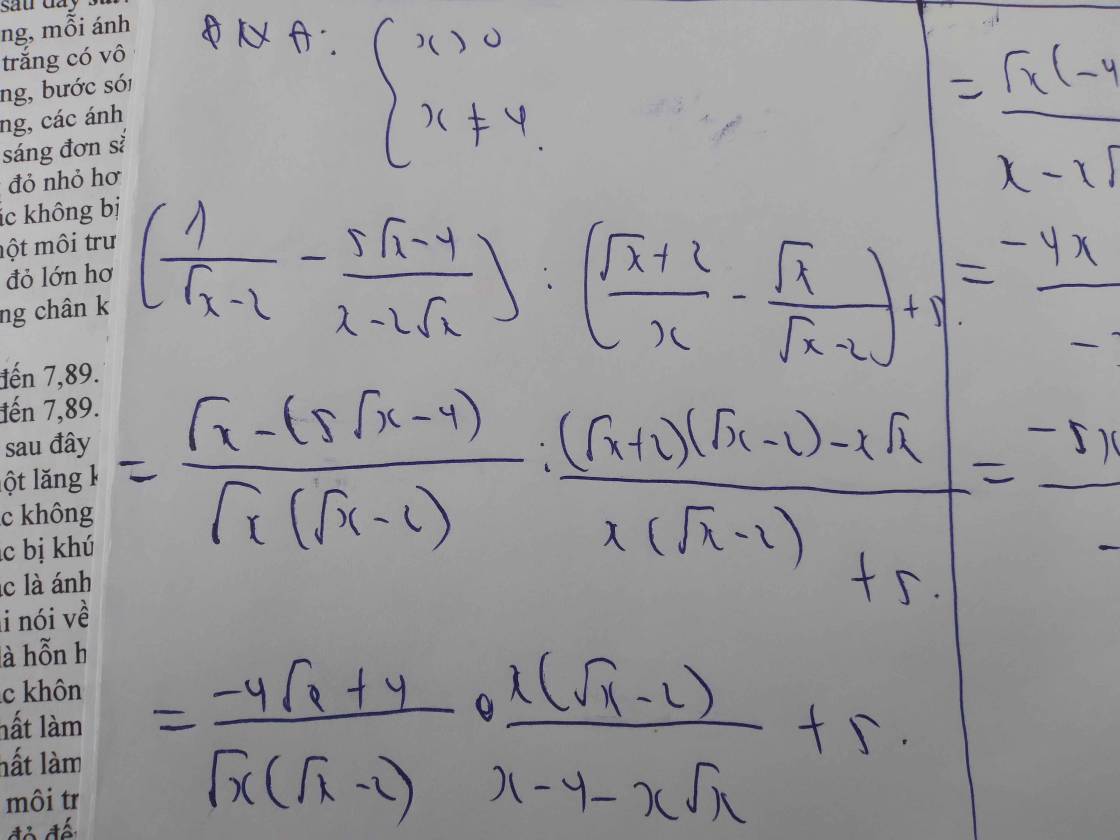 sau đây
ng, mỗi ánh
trắng có vô
ng, bước són
ng, các ánh
sáng đơn sắ
đỏ nhỏ hơ
ắc không bị
một môi trư
đỏ lớn hơ
ng chân k
đến 7,89.
đến 7,89.
sau đây
một lăng k
c không
c bị khú
ắc là ánh
i nói về
là hỗn h
c khôn
hất làm
hất làm
môi tr
đỏ đế
ĐKXĐ: { x > 0
x ≠ 4.
(1/(√x-2) - (5√x-4)/(x-2√x)) : ((√x+2)/x - √x/(√x-2)) + 5.
= (√x-(5√x-4))/(√x(√x-2)) : ((√x+2)(√x-2)-x√x)/(x(√x-2)) + 5.
= (-4√x+4)/(√x(√x-2)) · (x(√x-2))/(x-4-x√x) + 5.
= √x(-4
x - x√
= -4x
-
= -5x
-